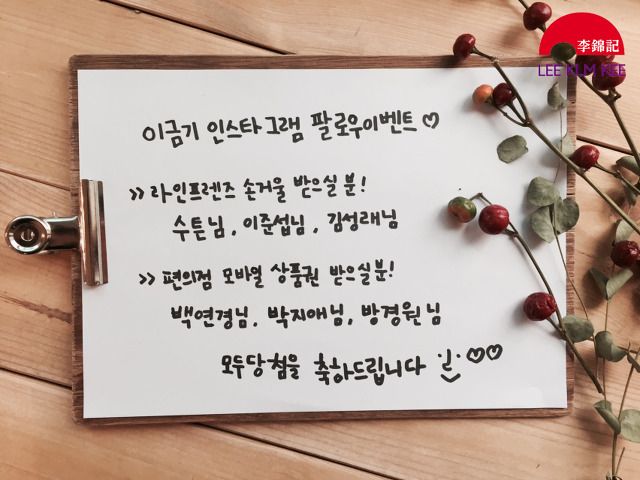 李錦記
LEE KUM KEE
이금기 인스타그램 팔로우이벤트♡
>> 라인프렌즈 손거울 받으실 분!
수튼님, 이준섭님, 김성래님
>> 편의점 모바일 상품권 받으실분!
백연경님, 박지애님, 방경원님
모두당첨을 축하드립니다 ♡♡